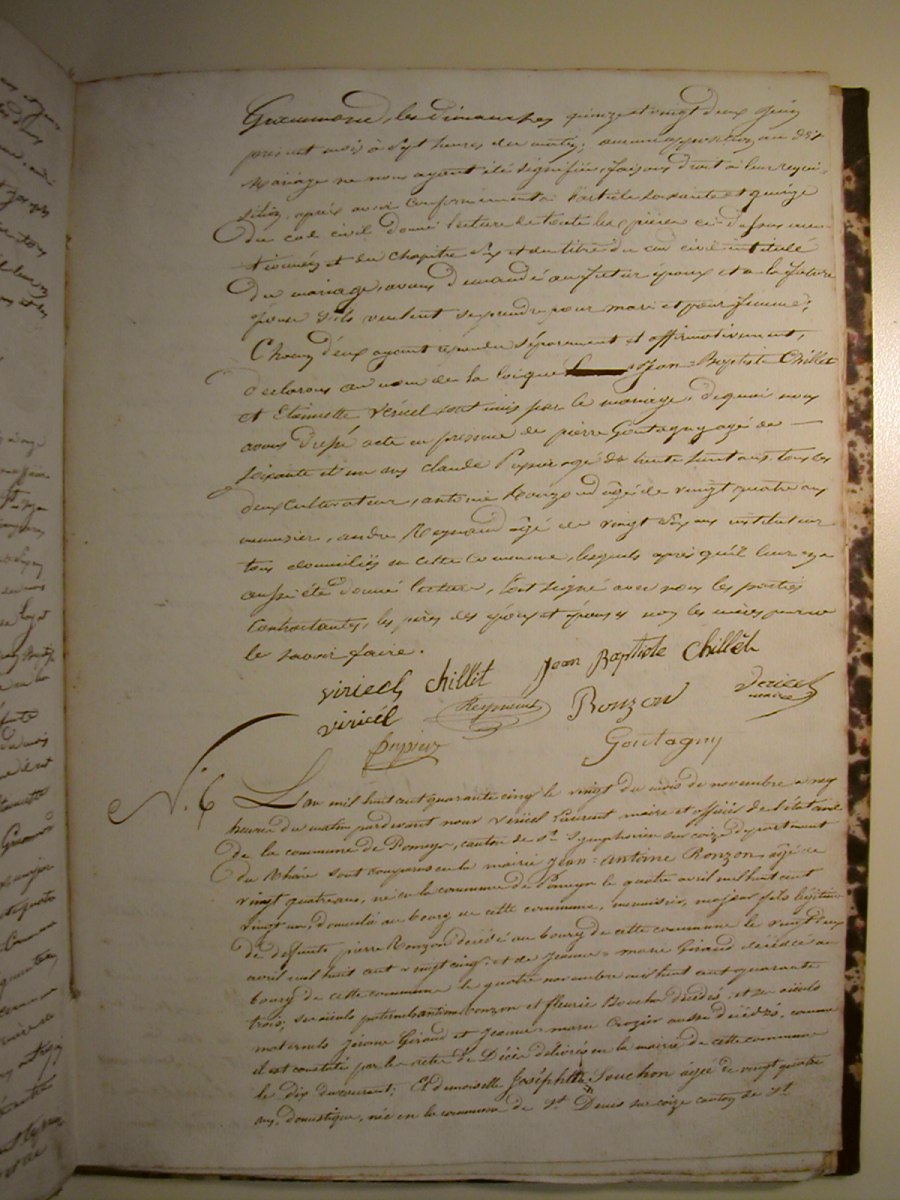 les dimanches quinze et vingt deux juin
présent mois à sept heures du matin; aucune opposition au dit
mariage ne nous ayant été signifiée, faisant droit à leur requi-
sition, après avoir conformément à l'article soixante et quinze
du code civil donné lecture de toute les pièces ci-dessus men-
tionnées et du chapitre six et du titre du code civil intitulé
du mariage, avons demandé au futur époux et a la future
épouse s'ils veulent se prendre pour mari et pour femme;
Chacun d'eux ayant répondu séparément et affirmativement,
declarons au nom de la loi que Jean-Baptiste Chillet
et Etiennette Vericel sont unis par le mariage, de quoi nous
avons dressé acte en présence de pierre Goutagny agé de
soixante et un ans claude agé de trente sept ans tous les
deux cultivateur, antoine Ronzon agé de vingt quatre ans
menuisier, andré Reynaud agé de vingt six ans instituteur
tous domiciliés en cette commune, lesquels après qu'il leur en a
aussi été donné lecture, l'ont signé avec nous les parties
contractantes, les pères des époux et épouse non les mères pour ne
le savoir faire.
viricel chillet Jean Baptiste Chillet
viricél Reynaud Ronzon Vericel
maire
Goutagny
N.º 6 L'an mil huit cent quarante cinq le vingt du mois de novembre a neuf
heures du matin pardevant nous Vericel Laurent maire et officier de l'état civil
de la commune de Pomeys, canton de St Symphorien sur coize département
du Rhône sont comparus en la mairie Jean-antoine Ronzon, agé de
vingt quatre ans, né en la commune de Pomeys le quatre avril mil huit cent
vingt un, domicilié au bourg de cette commune, menuisier, majeur fils légitime
de defunts pierre Ronzon décédé au bourg de cette commune le vingt deux
avril mil huit cent vingt cinq, et de Jeanne-marie Giraud décédée au
bourg de cette commune le quatre novembre mil huit cent quarante
trois; ses aïeuls paternels antoine ronzon et fleurie Bouchu décédés, et ses aïeuls
maternels Jérome Giraud et Jeanne-marie Crozier aussi décédés, comme
il est constaté par les actes de Décès délivrés en la mairie de cette commune
le dix du courant; Et demoiselle Joséphte Souchon agée de vingt quatre
ans, domestique, née en la commune de St Denis sur coize canton de St